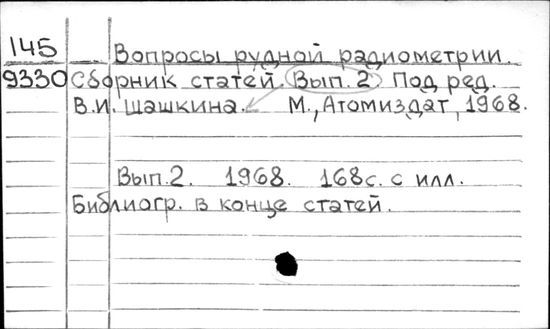 145 Вопросы рудной радиометрии.
9330 Сборник статей. Вып. 2 Под ред.
В.И. Шашкина. М., Атомиздат, 1968.
Вып.2. 1968. 168с. с илл.
Библиогр. в конце статей.